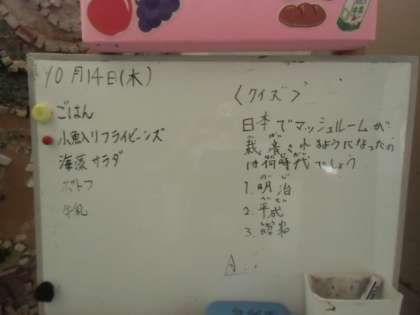 10月14日(木)
ごはん
小魚入りフライビーンズ
海藻サラダ
ポトフ
牛乳
〈クイズ〉
日本でマッシュルームが
栽培されるようになったの
は何時代でしょう
1.明治
2.平成
3.昭和
A.